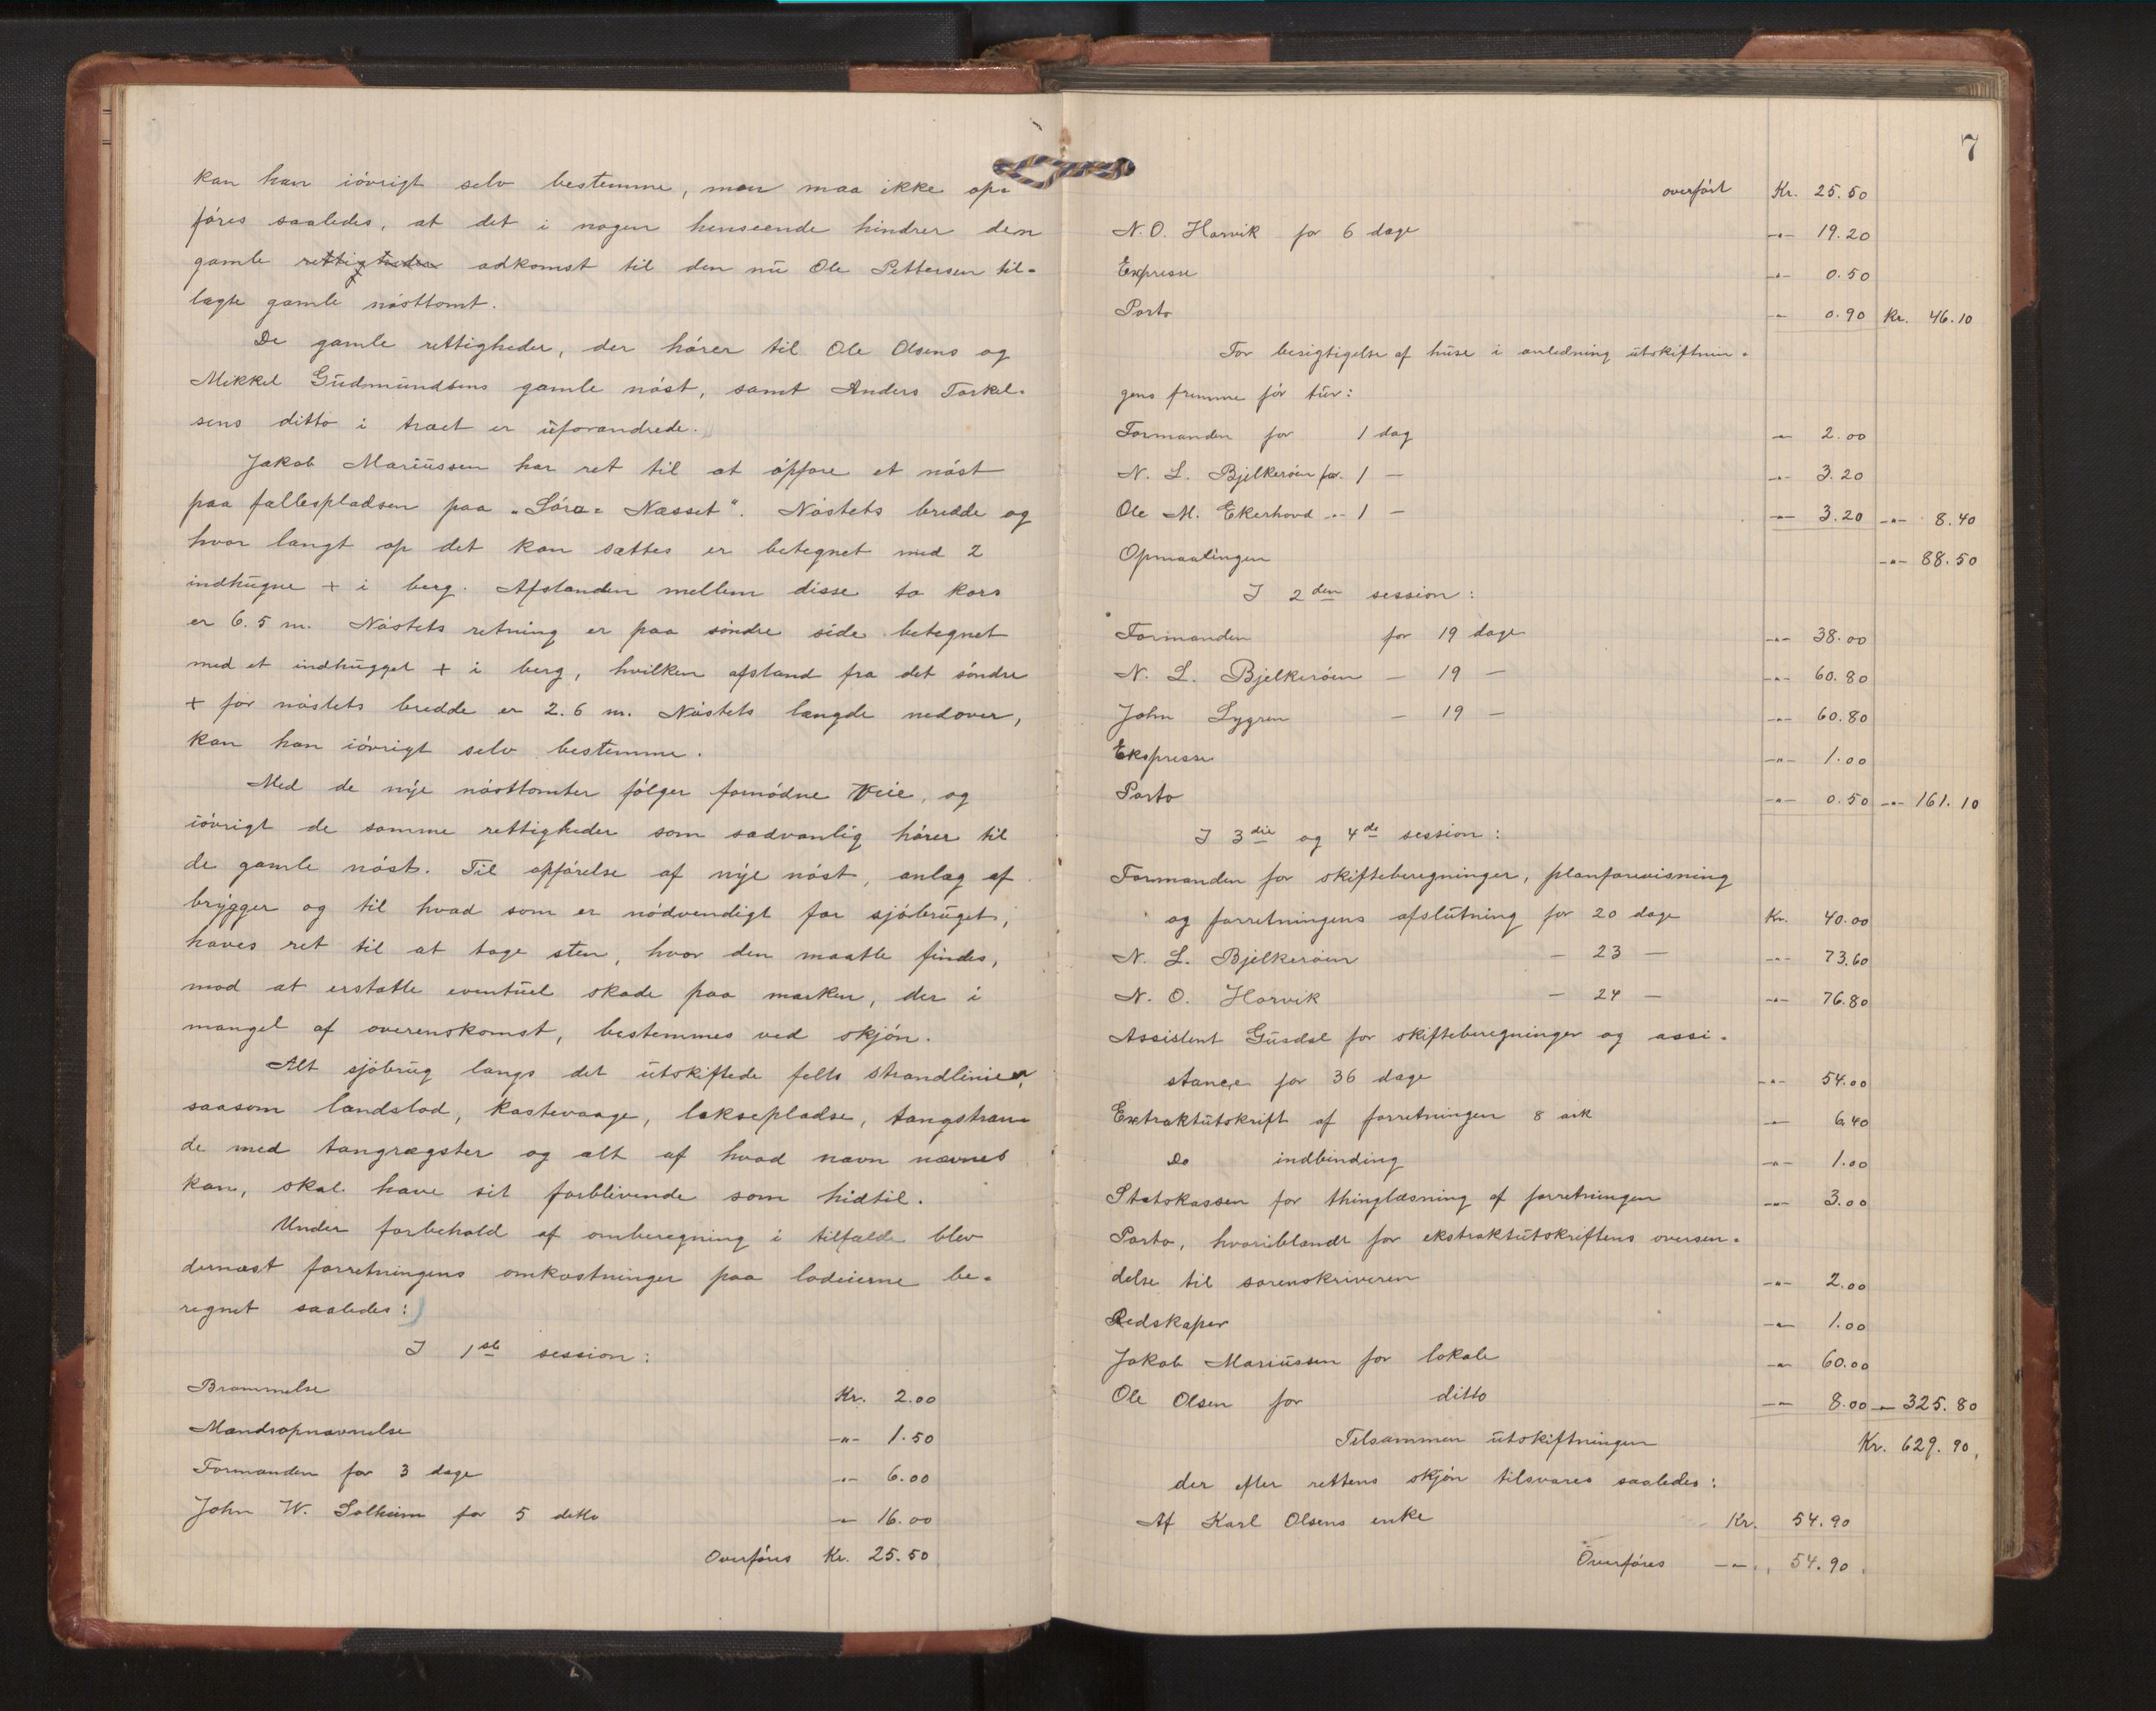 kan han iövrigt selv bestemme, men maa ikke op-
föres saaledes, at det i nogen henseende hindrer den
gamle rettigheder adkomst til den nu Ole Pettersen til-
lagte gamle nösttomt.
De gamle rettigheder, der hörer til Ole Olsens og
Mikkel Gudmundsens gamle nöst, samt Anders Torkel-
sens ditto i træet er uforandrede.
Jakob Mariussen har ret til at opföre et nöst
paa fællespladsen paa "Söra-Næsset". Nöstets bredde og
hvor langt op det kan sættes er betegnet med 2
indhugne + i berg. Afstanden mellem disse to kors
er 6.5 m. Nöstets retning er paa söndre side betegnet
med et indhugget + i berg, hvilken afstand fra det söndre
+ for nöstets bredde er 2.6 m. Nöstets længde nedover,
kan han iövrigt selv bestemme.
Med de nye nösttomter fölger fornödne veie, og
iövrigt de samme rettigheder som sædvanlig hörer til
de gamle nöst. Til opförelse af nye nöst, anlæg af
brygger og til hvad som er nödvendigt for sjöbruget,
haves ret til at tage sten, hvor den maatte findes,
mod at erstatte eventuel skade paa marken, der i
mangel af overenskomst, bestemmes ved skjön.
Alt sjöbrug langs det utskiftede felts strandlinier,
saasom landslod, kastevaage, laksepladse, tangstran-
de med tangrægster og alt af hvad navn nævnes
kan, skal have sit forblivende som hidtil.
Under forbehold af omberegning i tilfælde blev
dernæst forretningens omkostninger paa lodeierne be-
regnet saaledes:
I 1ste session:
Brammelse Kr. 2.00
Mandsopnævnelse -"- 1.50
Formanden for 3 dage -"- 6.00
John W. Solheim for 5 ditto -"- 16.00
Overföres Kr. 25.50
7
overfört Kr. 25.50
N. O. Horvik for 6 dage -"- 19.20
Expresse -"- 0.50
Porto -"- 0.90 Kr. 46.10
For besigtigelse af huse i anledning utskiftnin-
gens fremme för tur:
Formanden for 1 dag -"- 2.00
N. L. Bjelkeröen for 1 - -"- 3.20
Ole M. Ekerhovd -"- 1 - -"- 3.20 -"- 8.40
Opmaalingen -"- 88.50
I 2den session:
Formanden for 19 dage -"- 38.00
N. L. Bjelkeröen - 19 - -"- 60.80
John Lygren - 19 - -"- 60.80
Ekspresse -"- 1.00
Porto -"- 0.50 -"- 161.10
I 3die og 4de session:
Formanden for skifteberegninger, planforevisning
og forretningens afslutning for 20 dage Kr. 40.00
N. L. Bjelkeröen - 23 - -"- 73.60
N. O. Horvik - 24 - -"- 76.80
Assistent Gusdal for skifteberegninger og assi-
stance for 36 dage -"- 54.00
Extraktutskrift af forretningen 8 ark -"- 6.40
Do indbinding -"- 1.00
Statskassen for thinglæsning af forretningen -"- 3.00
Porto, hvoriblandt for ekstraktutskriftens oversen-
delse til sorenskriveren -"- 2.00
Redskaper -"- 1.00
Jakob Mariussen for lokale -"- 60.00
Ole Olsen for ditto -"- 8.00 -"- 325.80
Tilsammen utskiftningen Kr. 629.90,
der efter rettens skjön tilsvares saaledes:
Af Karl Olsens enke Kr. 54.90
Overföres -"- 54.90